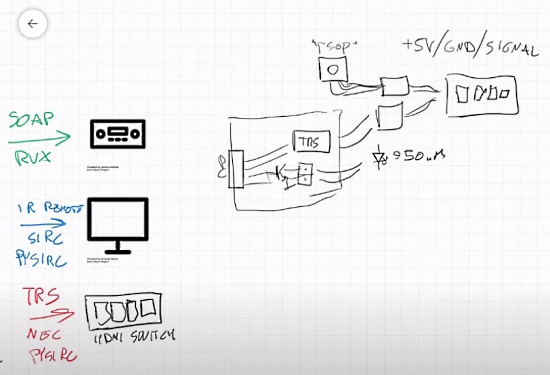 "TSOP"
+5V/GND/SIGNAL
SOAP
RVX
TRS
950nm
IR REMOTE
SIRC
PYSIRC
TRS
NEC
PYSIRC
HDMI SWITCH